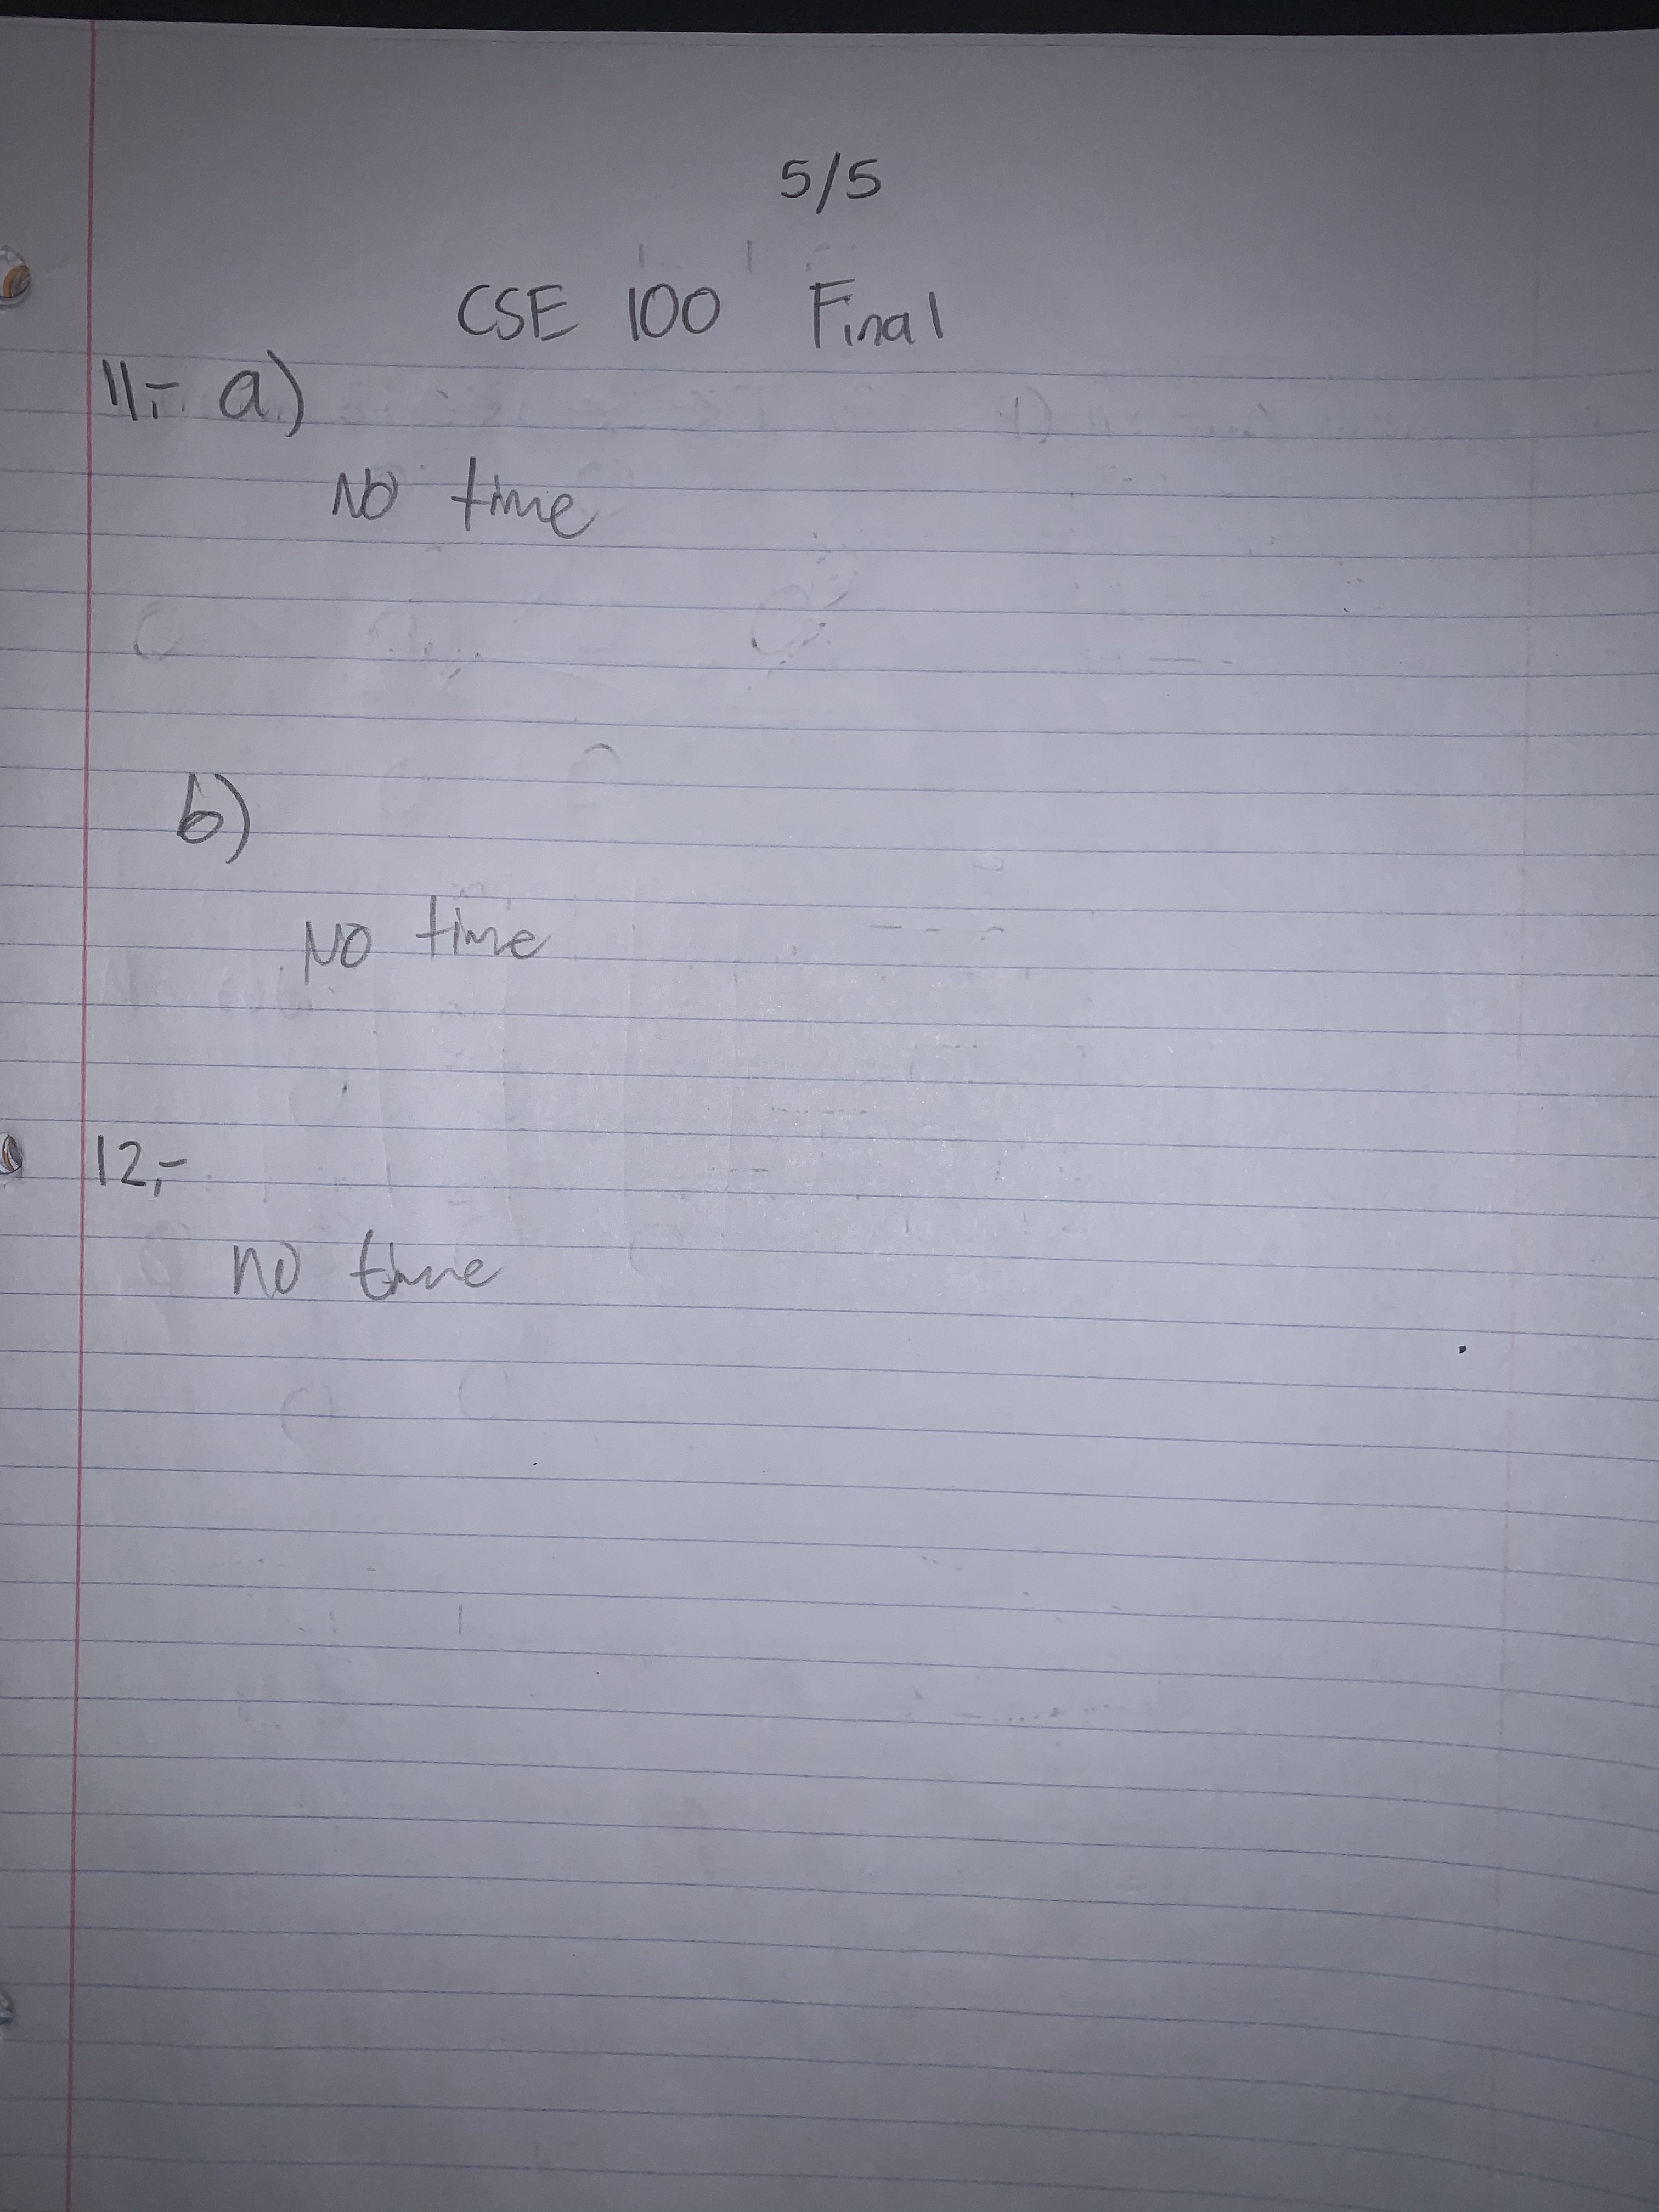 5/5
CSE 100 Final
11.- a)
No time
b)
No time
12.-
no time